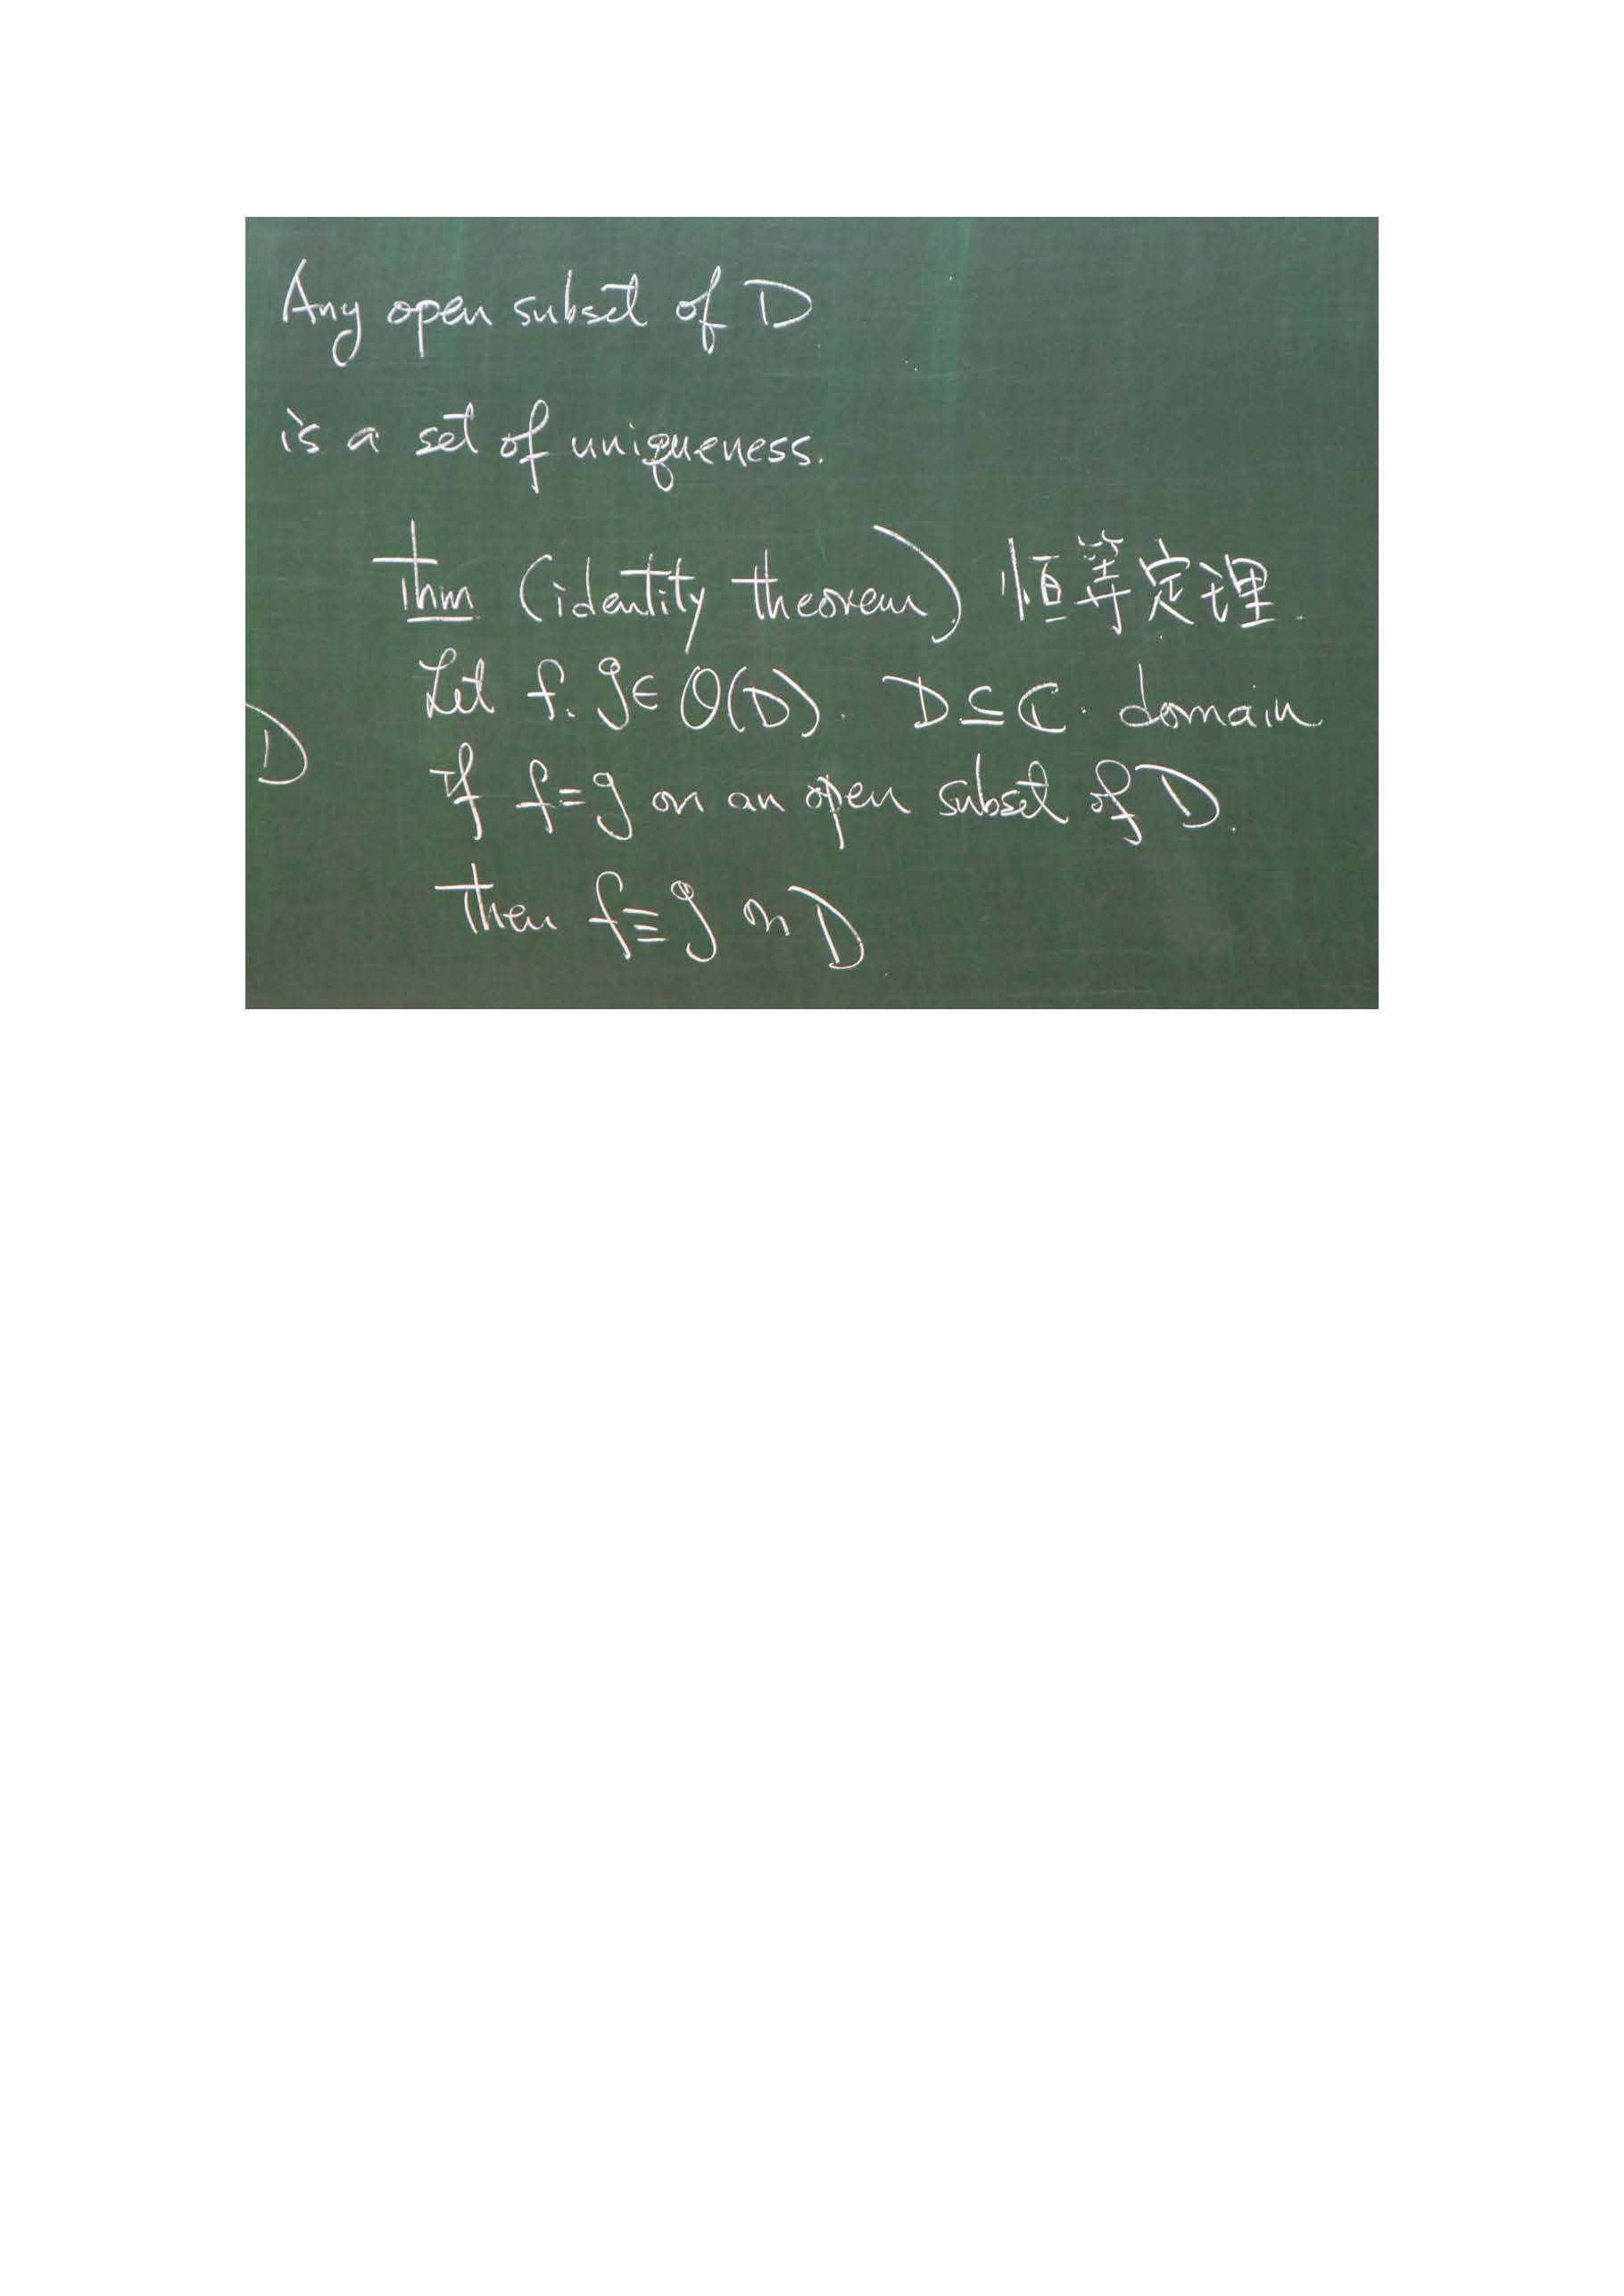 Any open subset of D
is a set of uniqueness.
Thm (identity theorem) 恒等定理.
Let f, g ∈ O(D). D ⊆ ℂ. domain
D
If f = g on an open subset of D.
Then f ≡ g on D